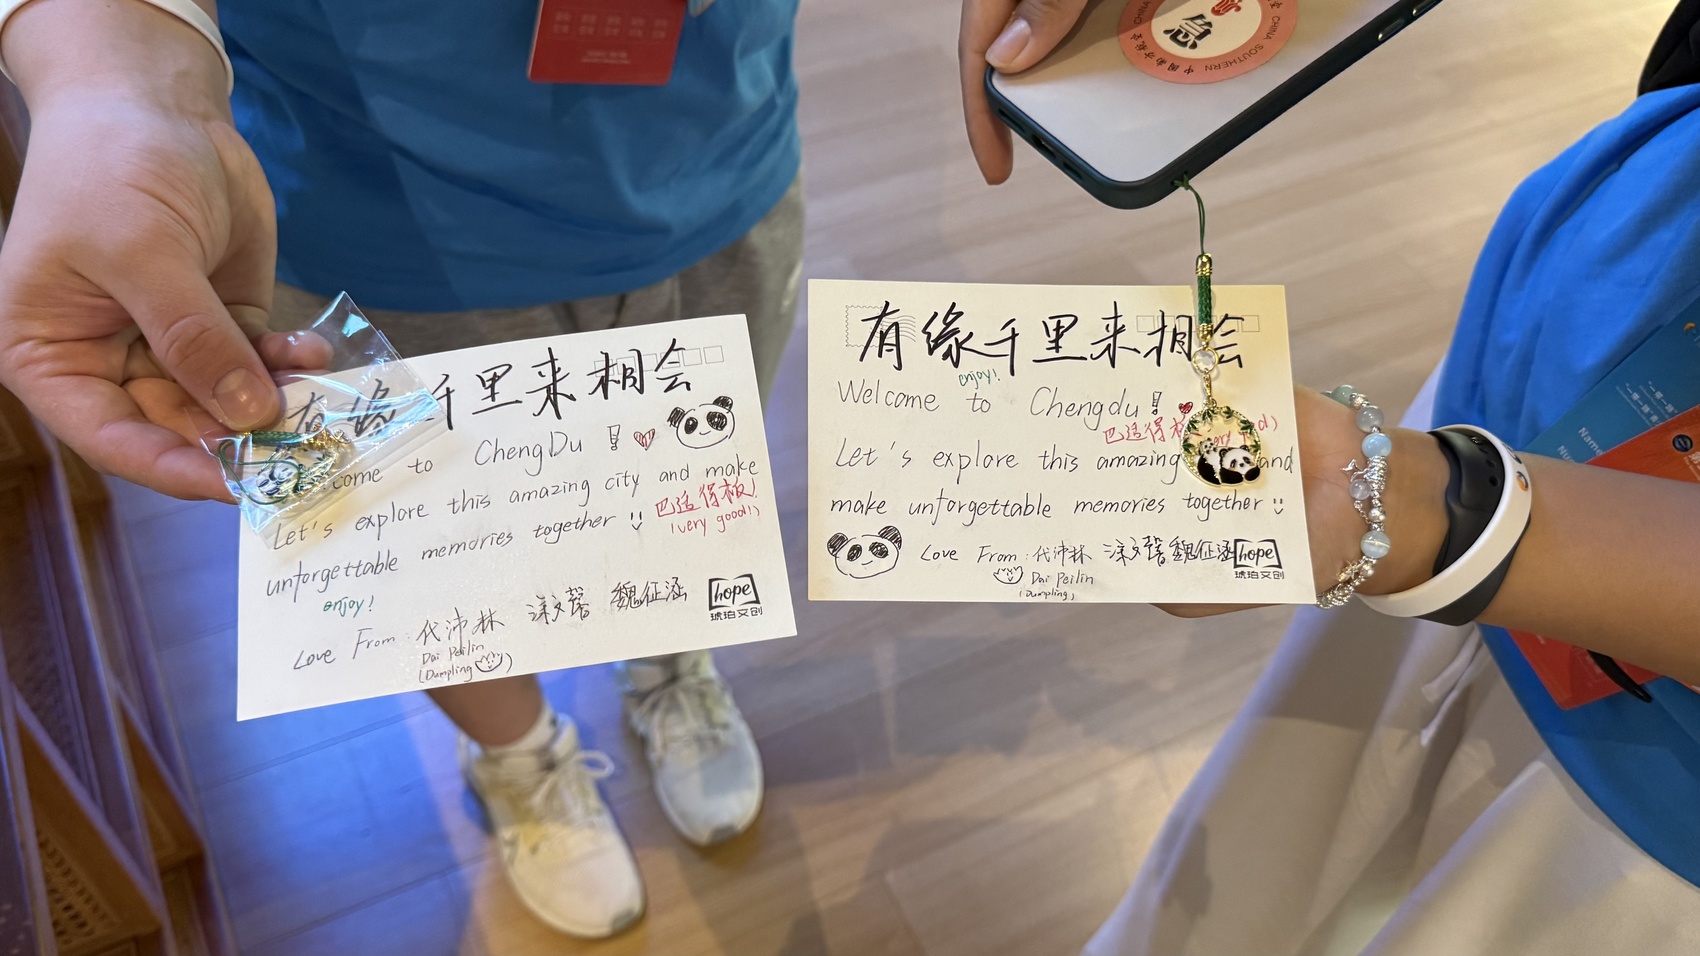 有缘千里来相会
come to ChengDu!
Let's explore this amazing city and make
巴适得板!
(very good!)
unforgettable memories together
enjoy!
Love From: 代沛林 涂文馨 魏征涵
Dai Peilin
(Dumpling)
hope
琥珀文创
有缘千里来相会
enjoy!
Welcome to Chengdu!
巴适得
Let's explore this amazing and
make unforgettable memories together
Love From: 代沛林 涂文馨 魏征涵
Dai Peilin
(Dumpling)
hope
琥珀文创
急
中国南方航空 CHINA SOUTHERN
Name